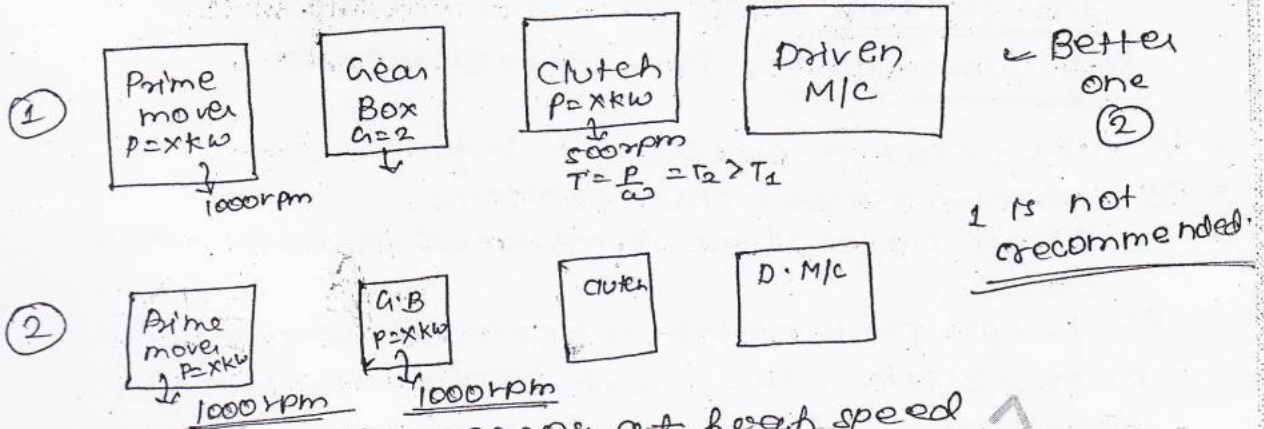 1
Prime
mover
P=xkw
1000rpm
Gear
Box
G=2
Clutch
P=xkw
500rpm
T=P/ω = T2 > T1
Driven
M/C
← Better
one
2
1 is not
recommended.
2
Prime
mover
P=xkw
1000rpm
G.B
P=xkw
1000rpm
clutch
D.M/C
at
speed